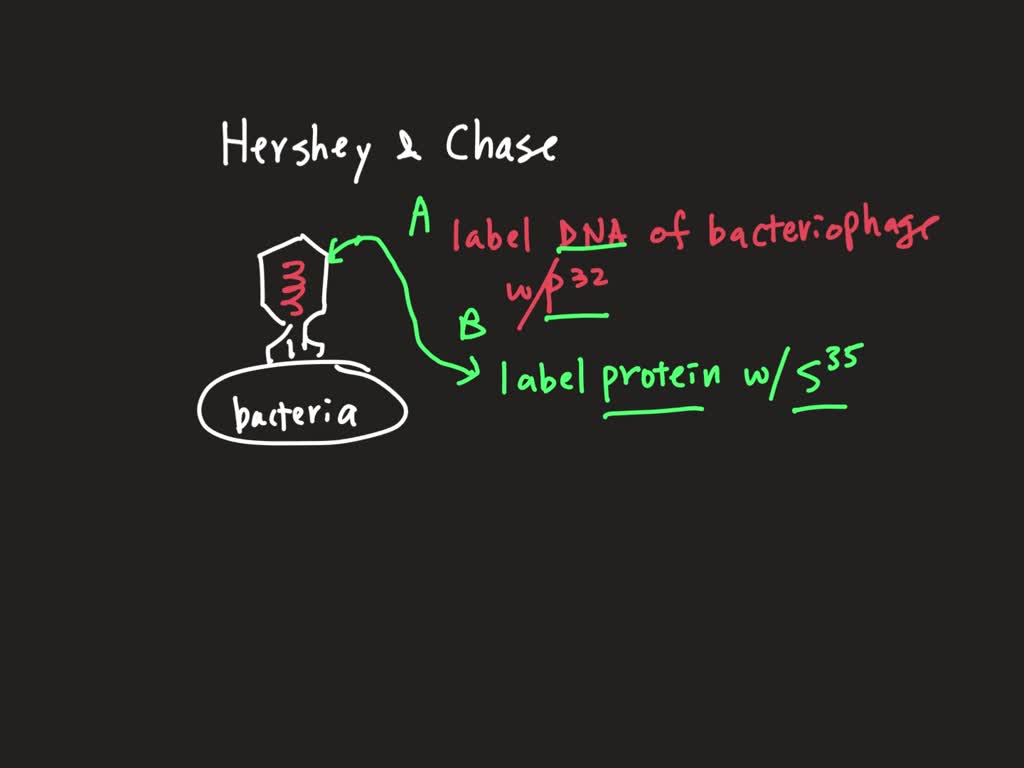 Hershey & Chase
A label DNA of bacteriophage
w/P32
B
label protein w/ S35
bacteria